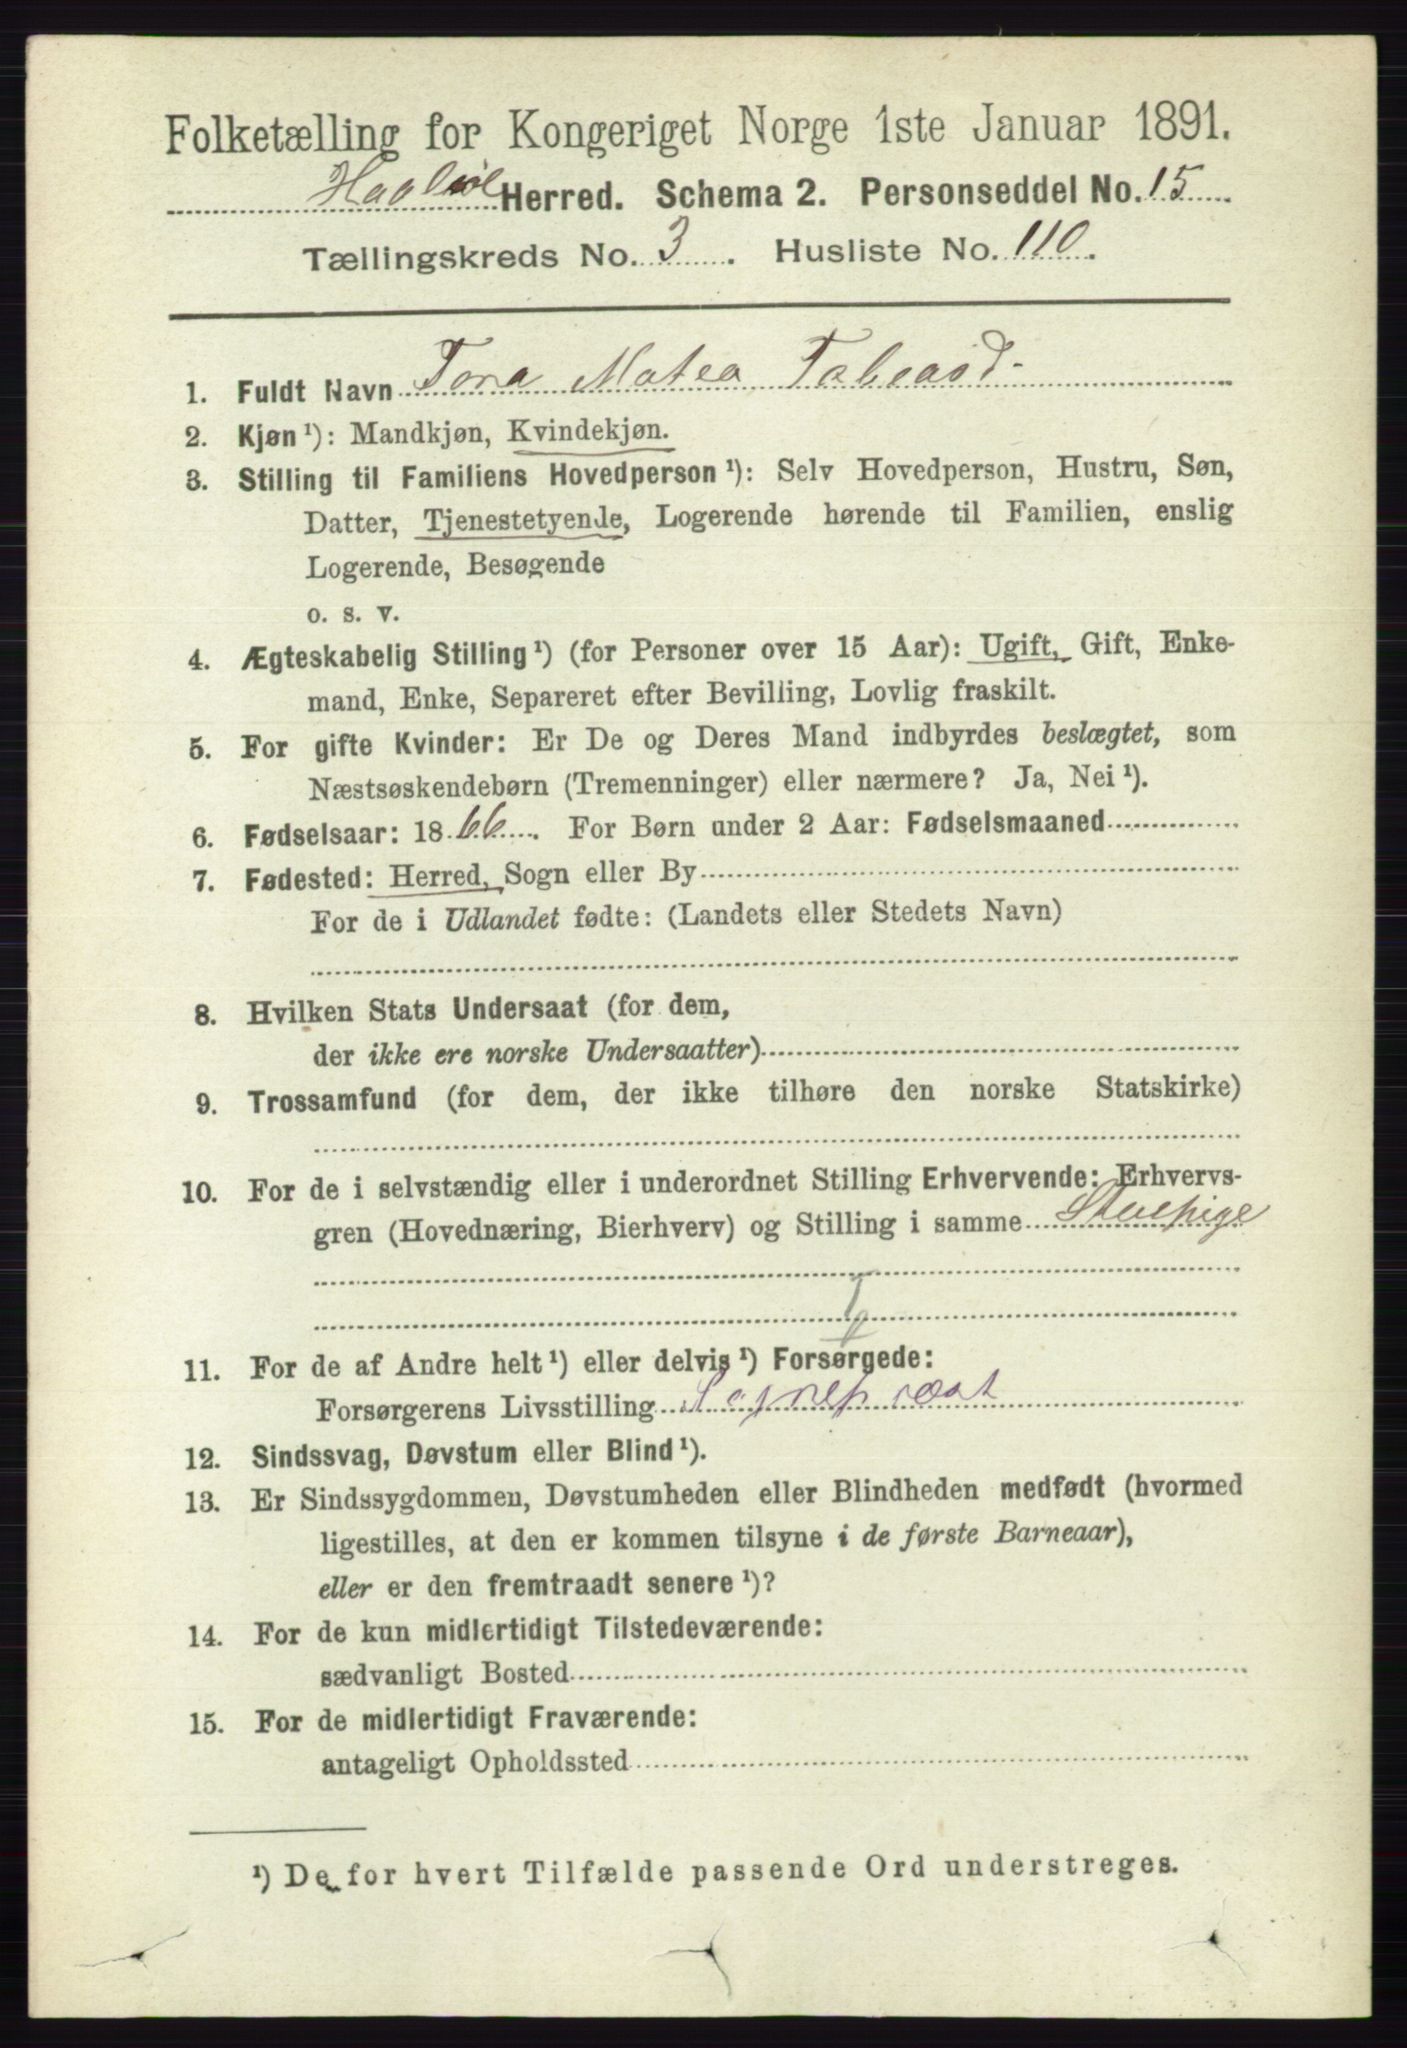 Folketælling for Kongeriget Norge 1ste Januar 1891.
Haabøl Herred. Schema 2. Personseddel No. 15
Tællingskreds No. 3. Husliste No. 110.
1. Fuldt Navn Tora Matea
2. Kjøn ¹): Mandkjøn, Kvindekjøn.
3. Stilling til Familiens Hovedperson ¹): Selv Hovedperson, Hustru, Søn,
Datter, Tjenestetyende, Logerende hørende til Familien, enslig
Logerende, Besøgende
o. s. v.
4. Ægteskabelig Stilling ¹) (for Personer over 15 Aar): Ugift, Gift, Enke-
mand, Enke, Separeret efter Bevilling, Lovlig fraskilt.
5. For gifte Kvinder: Er De og Deres Mand indbyrdes beslægtet, som
Næstsøskendebørn (Tremenninger) eller nærmere? Ja, Nei ¹).
6. Fødselsaar: 1866. For Børn under 2 Aar: Fødselsmaaned
7. Fødested: Herred, Sogn eller By
For de i Udlandet fødte: (Landets eller Stedets Navn)
8. Hvilken Stats Undersaat (for dem,
der ikke ere norske Undersaatter)
9. Trossamfund (for dem, der ikke tilhøre den norske Statskirke)
10. For de i selvstændig eller i underordnet Stilling Erhvervende: Erhvervs-
gren (Hovednæring, Bierhverv) og Stilling i samme Stuepige
11. For de af Andre helt ¹) eller delvis ¹) Forsørgede:
Forsørgerens Livsstilling Sognepræst
12. Sindssvag, Døvstum eller Blind ¹).
13. Er Sindssygdommen, Døvstumheden eller Blindheden medfødt (hvormed
ligestilles, at den er kommen tilsyne i de første Barneaar),
eller er den fremtraadt senere ¹)?
14. For de kun midlertidigt Tilstedeværende:
sædvanligt Bosted
15. For de midlertidigt Fraværende:
antageligt Opholdssted
¹) De for hvert Tilfælde passende Ord understreges.